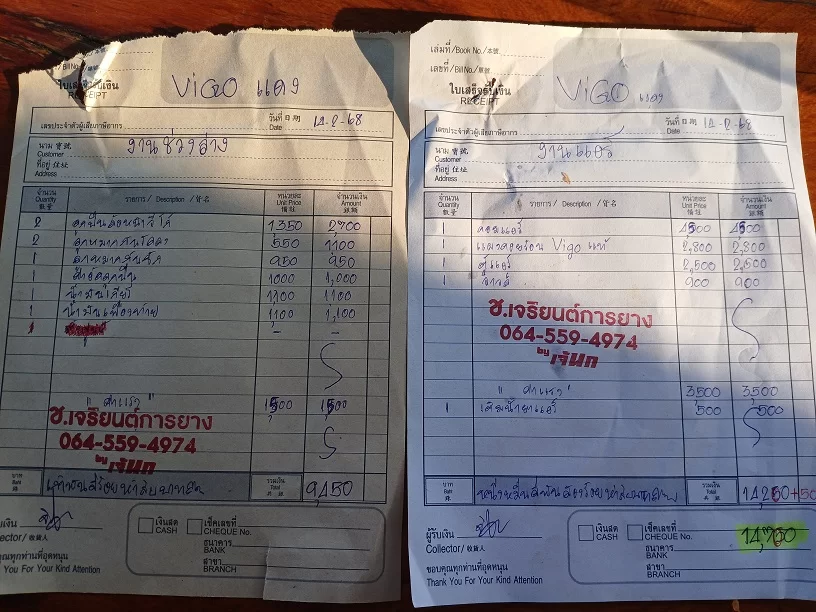 ใบเสร็จรับเงิน
RECEIPT
VIGO แดง
เลขประจำตัวผู้เสียภาษีอากร
วันที่ 日期
Date 14-2-68
นาม 寶號
Customer งานช่วงล่าง
ที่อยู่ 住址
Address
จำนวน Quantity 數量
รายการ / Description / 貨名
หน่วยละ Unit Price 價址
จำนวนเงิน Amount 銀碼
2 ลูกปืนล้อหน้าวีโก้ 1350 2700
2 ลูกหมากกันโคลง 550 1100
1 ลูกหมากคันชัก 950 950
1 ค่าอัดลูกปืน 1000 1,000
1 น้ำมันเกียร์ 1100 1100
1 น้ำมันเฟืองท้าย 1100 1,100
1 - -
"ค่าแรง" 1500 1500
ช.เจริยนต์การยาง
064-559-4974
by เจ๊นก
บาท Baht 銖
เก้าพันสี่ร้อยห้าสิบบาทถ้วน
รวมเงิน Total 共銀
9,450
เงินสด CASH
เช็คเลขที่ CHEQUE No.
Collector/ 收銀人
ธนาคาร BANK
สาขา BRANCH
คุณทุกท่านที่อุดหนุน
You For Your Kind Attention
เล่มที่/Book No./本號
เลขที่/Bill No./號碼
ใบเสร็จรับเงิน
RECEIPT
VIGO แดง
เลขประจำตัวผู้เสียภาษีอากร
วันที่ 日期
Date 14-2-68
นาม 寶號
Customer งานแอร์
ที่อยู่ 住址
Address
จำนวน Quantity 數量
รายการ / Description / 貨名
หน่วยละ Unit Price 價址
จำนวนเงิน Amount 銀碼
1 คอมแอร์ 4500 4500
1 แผงคอยร้อน Vigo แท้ 2,800 2,800
1 ตู้แอร์ 2,500 2,500
1 วาล์ว 900 900
ช.เจริยนต์การยาง
064-559-4974
by เจ๊นก
"ค่าแรง" 3,500 3,500
1 เติมน้ำยาแอร์ 500 500
บาท Baht 銖
หนึ่งหมื่นสี่พันสองร้อยห้าสิบบาทถ้วน
รวมเงิน Total 共銀
14,250+50
ผู้รับเงิน
Collector/ 收銀人
เงินสด CASH
เช็คเลขที่ CHEQUE No.
ธนาคาร BANK
สาขา BRANCH
ขอบคุณทุกท่านที่อุดหนุน
Thank You For Your Kind Attention